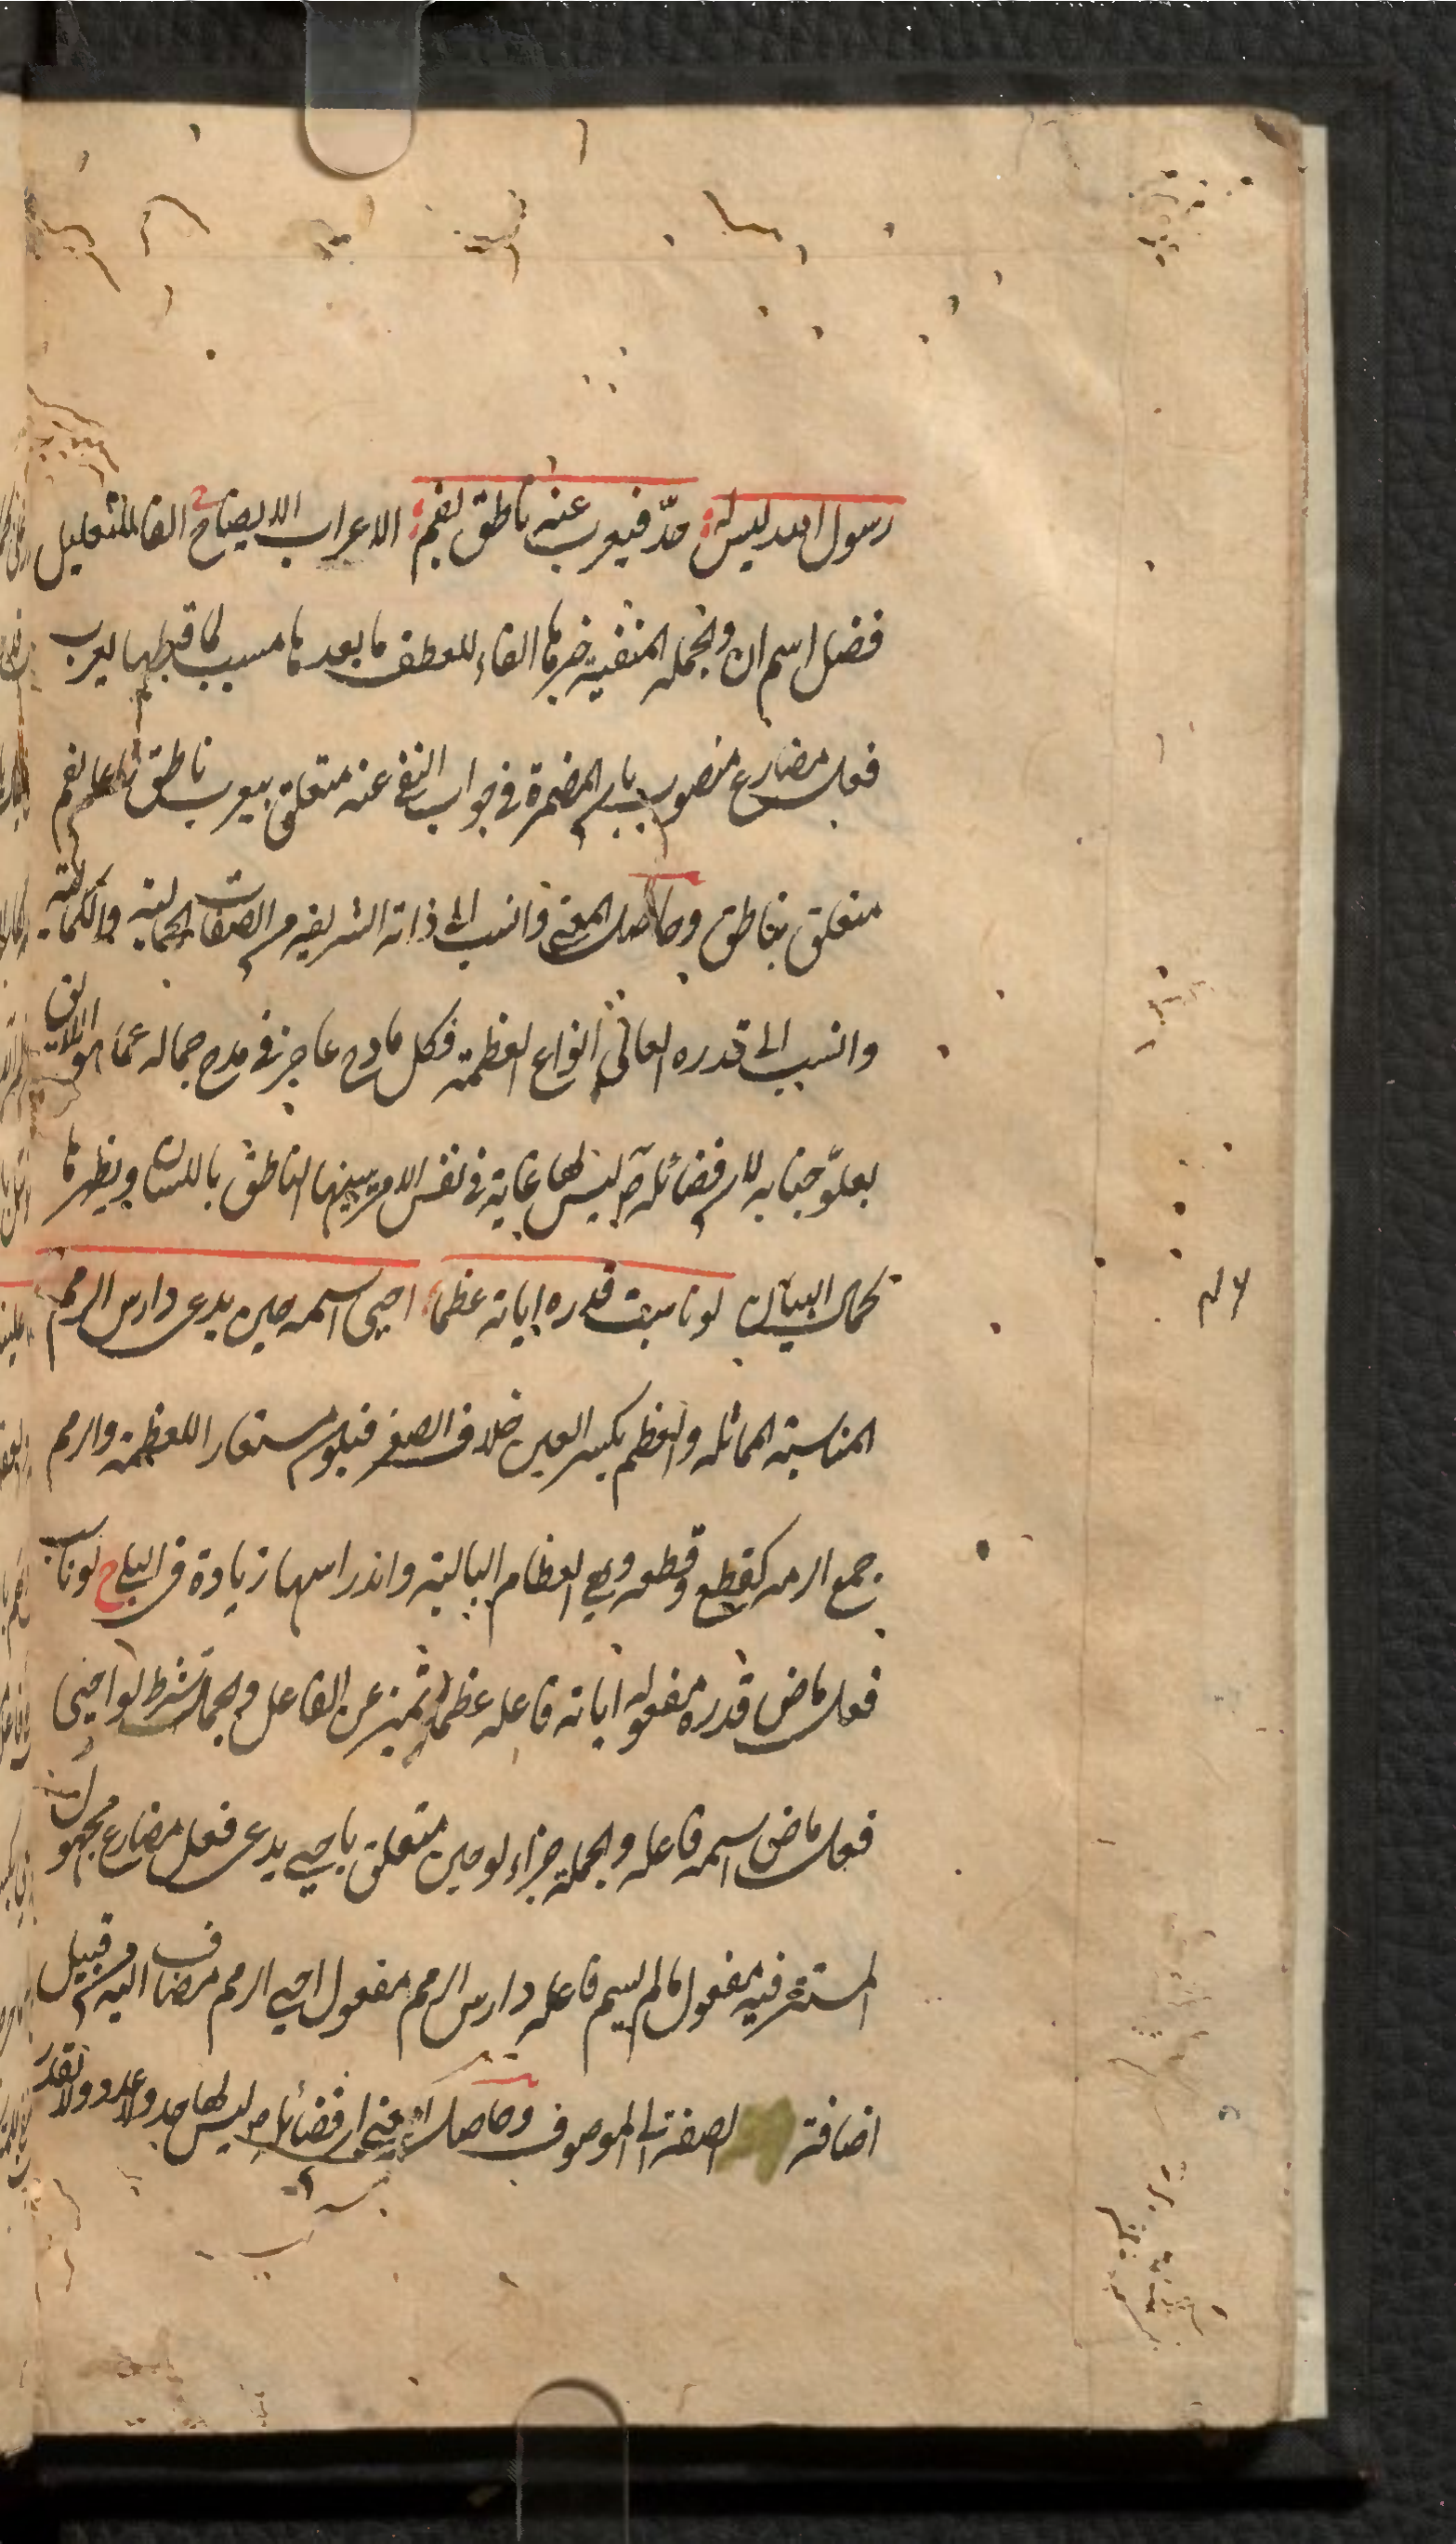 رسول الله ليس له حدّ فيعرب عنه ناطق بفم الاعراب الايضاح الفا للتعليل
فضل اسم ان والجملة المنفية خبرها الفاء للعطف ما بعدها مسبب لما قبلها يعرب
فعل مضارع منصوب بان المضمرة في جواب النفي عنه متعلق بيعرب ناطق فاعل بفم
متعلق بناطق وحاصل المعنى وانسب الى ذاته الشريفة من الصفات الجمالية والكمالية
وانسب الى قدره العالي انواع العظمة فكل مادح عاجز في مدح جماله عما هو اللايق
بعلوّ جنابه لان فضائله ص ليس لها غاية في نفس الامر يبينها الناطق باللسان ويظهرها
بكمال البيان لو ناسبت قدره اياته عظما احيى اسمه حين يدعى دارس الرمم
المناسبة المماثلة والعظم بكسر العين خلاف الصغر فيكون مستعارا للعظمة والرمم
جمع الرمة كقطع وقطعة وهي العظام البالية واندراسها زيادة في البلى ح لو ناسبت
فعل ماض قدره مفعوله اياته فاعله عظما تميز عن الفاعل والجملة شرط لو احيى
فعل ماض اسمه فاعله والجملة جزاء لو حين متعلق باحيى يدعى فعل مضارع مجهول
المستتر فيه مفعول ما لم يسم فاعله دارس الرمم مفعول احيى الرمم مضاف اليه من قبيل
اضافة الصفة الى الموصوف وحاصل المعنى ان فضائله ص ليس لها حد ولا عد ولا تقدر